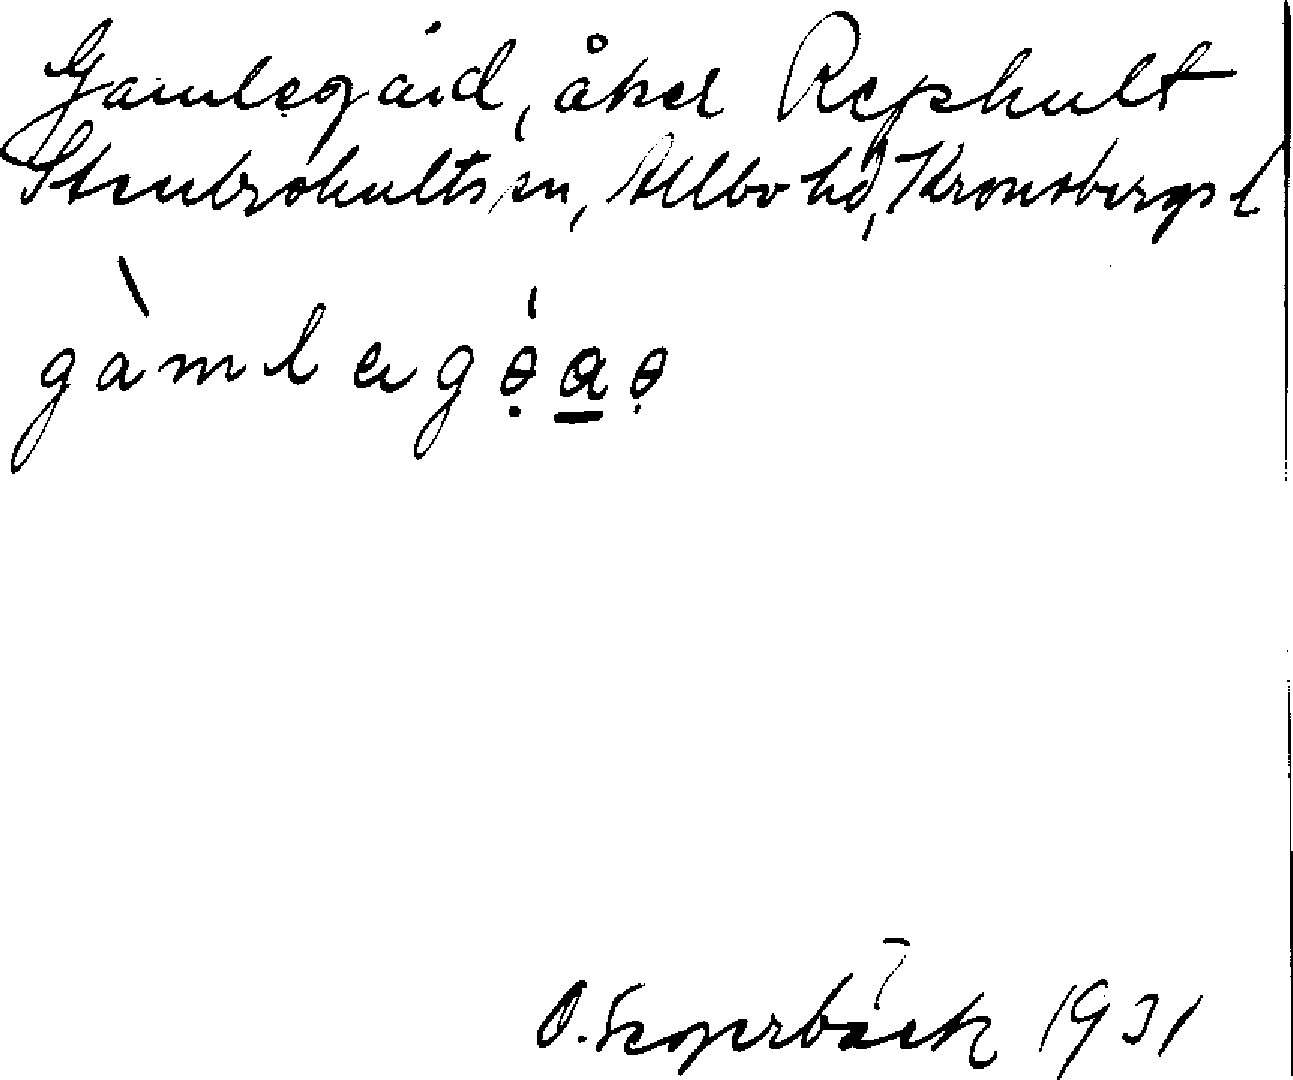 Gamlegård, åker Repshult
Stenbrohults sn, Allbo hd, Kronobergs l
gàmlagọaọ
O. Segerbäck 1931